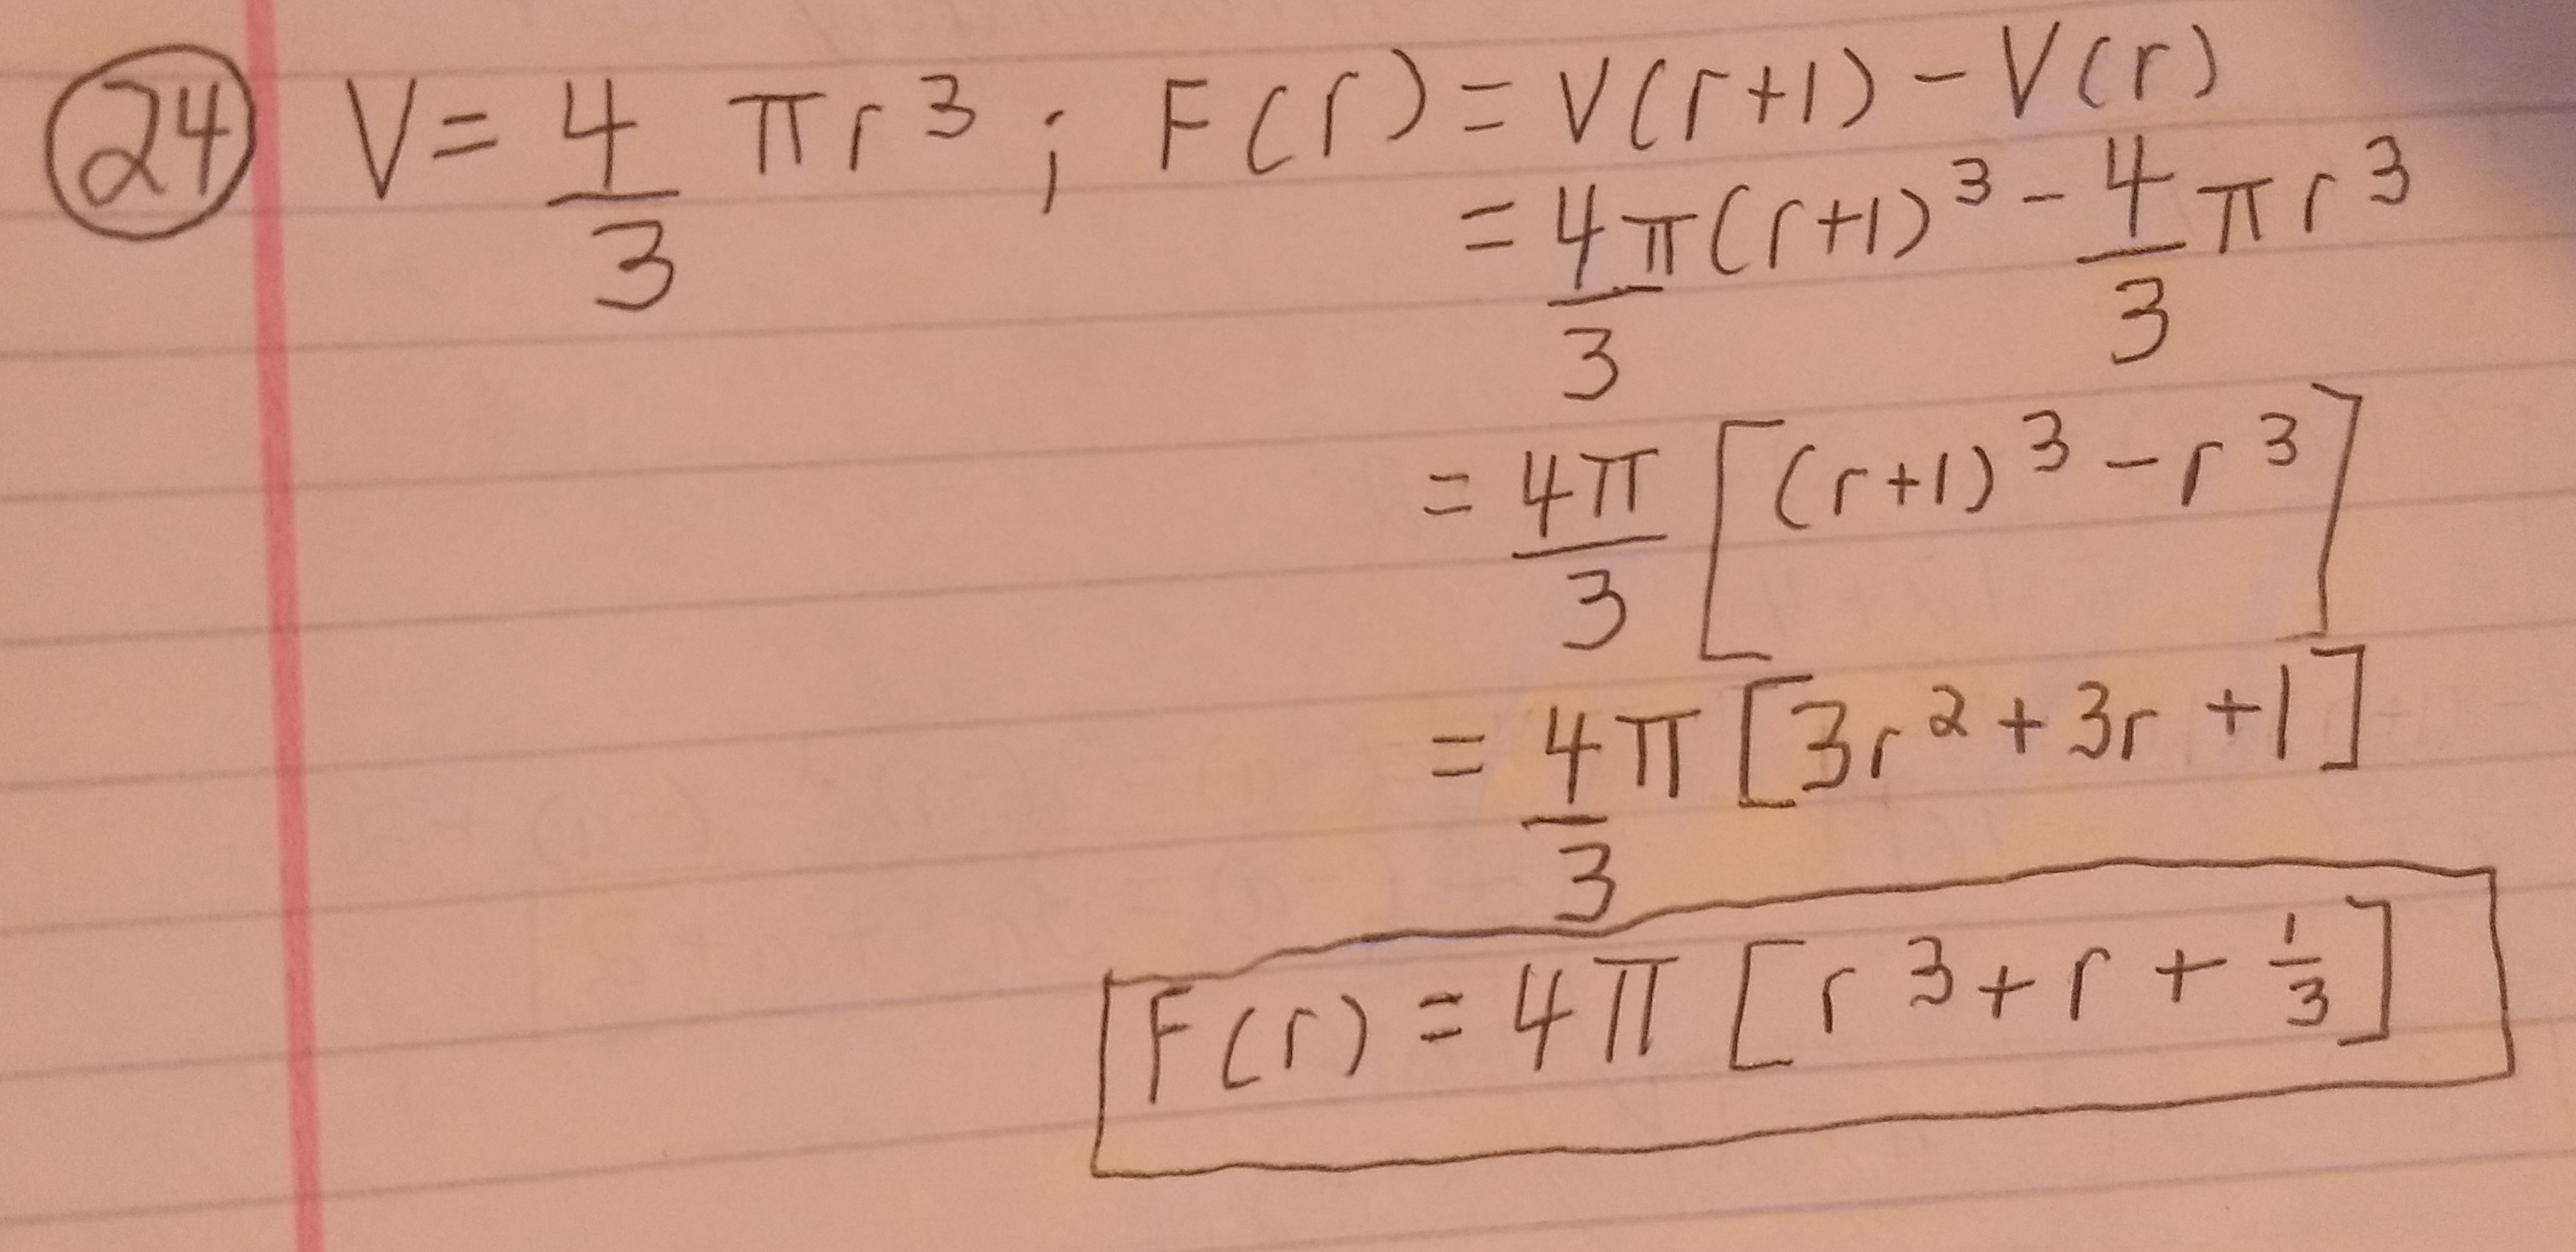 24 V = 4/3 πr³ ; F(r) = V(r+1) - V(r)
= 4π/3 (r+1)³ - 4/3 πr³
= 4π/3 [(r+1)³ - r³]
= 4/3 π [3r² + 3r + 1]
F(r) = 4π [r³ + r + 1/3]